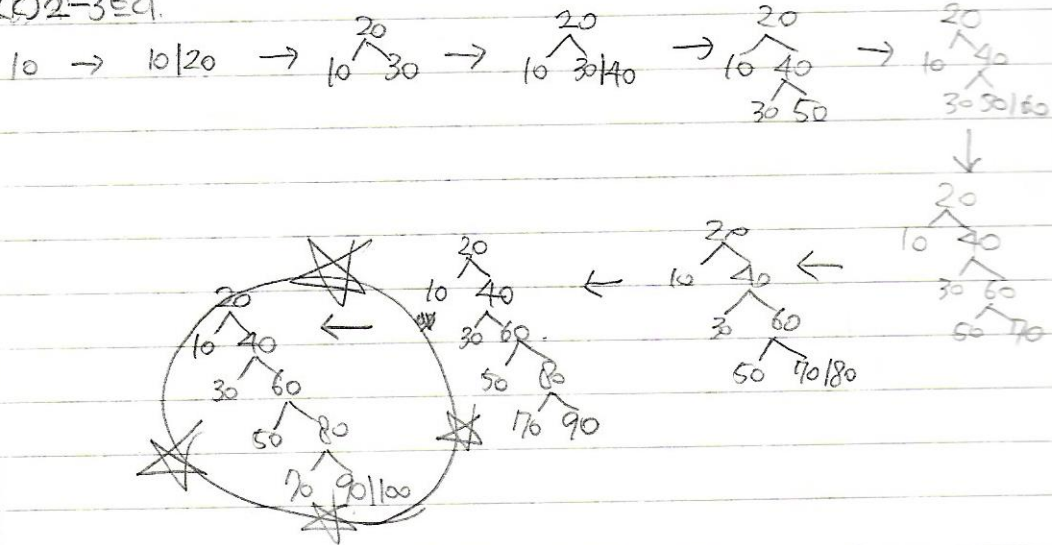 (c) 2-3트리.
10 → 10|20 → 20 → 20 → 20 → 20
10 30 10 30|40 10 40 10 40
30 50 30 50|60
↓
20
10 40
30 60
50 70
←
20
10 40
30 60
50 70|80
←
20
10 40
30 60
50 80
70 90
←
20
10 40
30 60
50 80
70 90|100